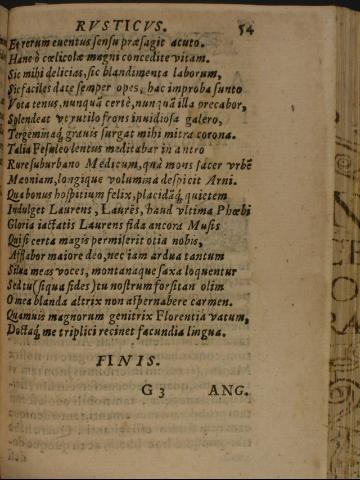 RVSTICVS. 54
Et rerum euentus sensu præsagit acuto.
Hanc ô cœlicolæ magni concedite vitam.
Sic mihi delicias, sic blandimenta laborum,
Sic faciles date semper opes, hac improba sunto
Vota tenus, nunquã certè, nunquã illa precabor,
Splendeat vt rutilo frons inuidiosa galero,
Tergeminaq́, grauis surgat mihi mitra corona.
Talia Fesuleo lentus meditabar in antro
Rure suburbano Medicum, quà mons sacer vrbẽ
Mæoniam, longique volumina despicit Arni.
Qua bonus hospitium felix, placidãq́, quietem
Indulget Laurens, Laurẽs, haud vltima Phœbi
Gloria iactatis Laurens fida ancora Musis
Qui si certa magis permiserit otia nobis,
Afflabor maiore deo, nec iam ardua tantum
Silua meas voces, montanaque saxa loquentur
Sed tu (si qua fides) tu nostrum forsitan olim
O mea blanda altrix non aspernabere carmen.
Quamuis magnorum genitrix Florentia vatum,
Doctaq́, me triplici recinet facundia lingua.
FINIS.
G 3 ANG.